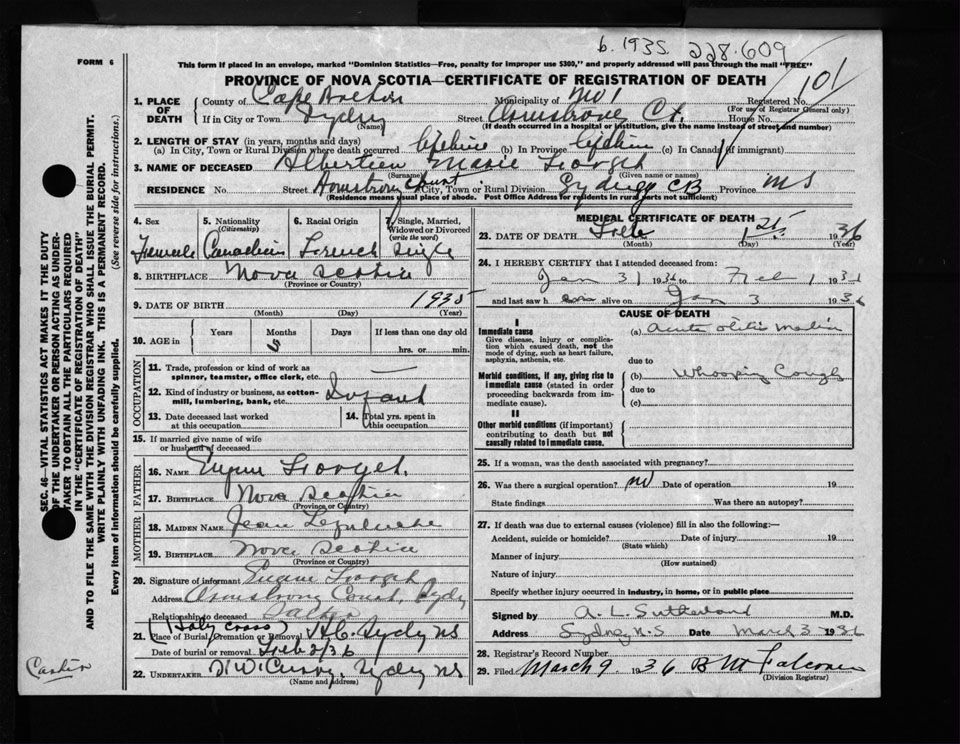 b. 1935. 228.609
FORM 6
This form if placed in an envelope, marked "Dominion Statistics—Free, penalty for improper use $300," and properly addressed will pass through the mail "FREE"
101
PROVINCE OF NOVA SCOTIA—CERTIFICATE OF REGISTRATION OF DEATH
1. PLACE OF DEATH
County of Cape Breton Municipality of No 1 Registered No.
(For use of Registrar General only)
If in City or Town Sydney Street Armstrong Ct. House No.
(Name) (If death occurred in a hospital or institution, give name instead of street and number)
2. LENGTH OF STAY (in years, months and days)
(a) In City, Town or Rural Division where death occurred lifetime (b) In Province lifetime (c) In Canada (if immigrant)
3. NAME OF DECEASED Marie
(Surname) (Given name or names)
RESIDENCE No. Street Armstrong Court City, Town or Rural Division Sydney CB Province NS
(Residence means usual place of abode. Post Office Address for residents in rural parts not sufficient)
4. Sex 5. Nationality 6. Racial Origin 7. Single, Married, Widowed or Divorced
(Citizenship) (write the word)
Female Canadian French Single
8. BIRTHPLACE Nova Scotia
(Province or Country)
9. DATE OF BIRTH 1935
(Month) (Day) (Year)
10. AGE in Years Months Days If less than one day old
5 hrs. or min.
OCCUPATION
11. Trade, profession or kind of work as spinner, teamster, office clerk, etc.
12. Kind of industry or business, as cotton-mill, lumbering, bank, etc. Infant
13. Date deceased last worked at this occupation 14. Total yrs. spent in this occupation
15. If married give name of wife or husband of deceased
FATHER
16. NAME
17. BIRTHPLACE Nova Scotia
(Province or Country)
MOTHER
18. MAIDEN NAME Jean
19. BIRTHPLACE Nova Scotia
(Province or Country)
20. Signature of informant
Address Armstrong Court, Sydney
Relationship to deceased Father
(Holy Cross)
21. Place of Burial, Cremation or Removal H.C. Sydney NS
Date of burial or removal Feb 2/36
22. UNDERTAKER T. W. Curry, Sydney NS
(Name and address)
MEDICAL CERTIFICATE OF DEATH
23. DATE OF DEATH Feb 1st 1936
(Month) (Day) (Year)
24. I HEREBY CERTIFY that I attended deceased from:
Jan 31 1936 to Feb 1 1936
and last saw h alive on Jan 3 1936
CAUSE OF DEATH
I
Immediate cause (a) Acute otitis media
Give disease, injury or complication which caused death, not the mode of dying, such as heart failure, asphyxia, asthenia, etc.
due to
Morbid conditions, if any, giving rise to immediate cause (stated in order proceeding backwards from immediate cause).
(b) Whooping Cough
due to
(c)
II
Other morbid conditions (if important) contributing to death but not causally related to immediate cause.
25. If a woman, was the death associated with pregnancy?
26. Was there a surgical operation? no Date of operation 19
State findings Was there an autopsy?
27. If death was due to external causes (violence) fill in also the following:—
Accident, suicide or homicide? Date of injury 19
(State which)
Manner of injury
(How sustained)
Nature of injury
Specify whether injury occurred in Industry, in home, or in public place
Signed by A. L. Sutherland M.D.
Address Sydney N.S Date March 3 1936
28. Registrar's Record Number
29. Filed March 9 1936 B M Falconer
(Division Registrar)
SEC. 46—VITAL STATISTICS ACT MAKES IT THE DUTY
OF THE UNDERTAKER OR PERSON ACTING AS UNDERTAKER
TO OBTAIN ALL THE PARTICULARS REQUIRED
IN THE "CERTIFICATE OF REGISTRATION OF DEATH"
AND TO FILE THE SAME WITH THE DIVISION REGISTRAR WHO SHALL ISSUE THE BURIAL PERMIT.
WRITE PLAINLY WITH UNFADING INK. THIS IS A PERMANENT RECORD.
Every item of information should be carefully supplied. (See reverse side for instructions.)